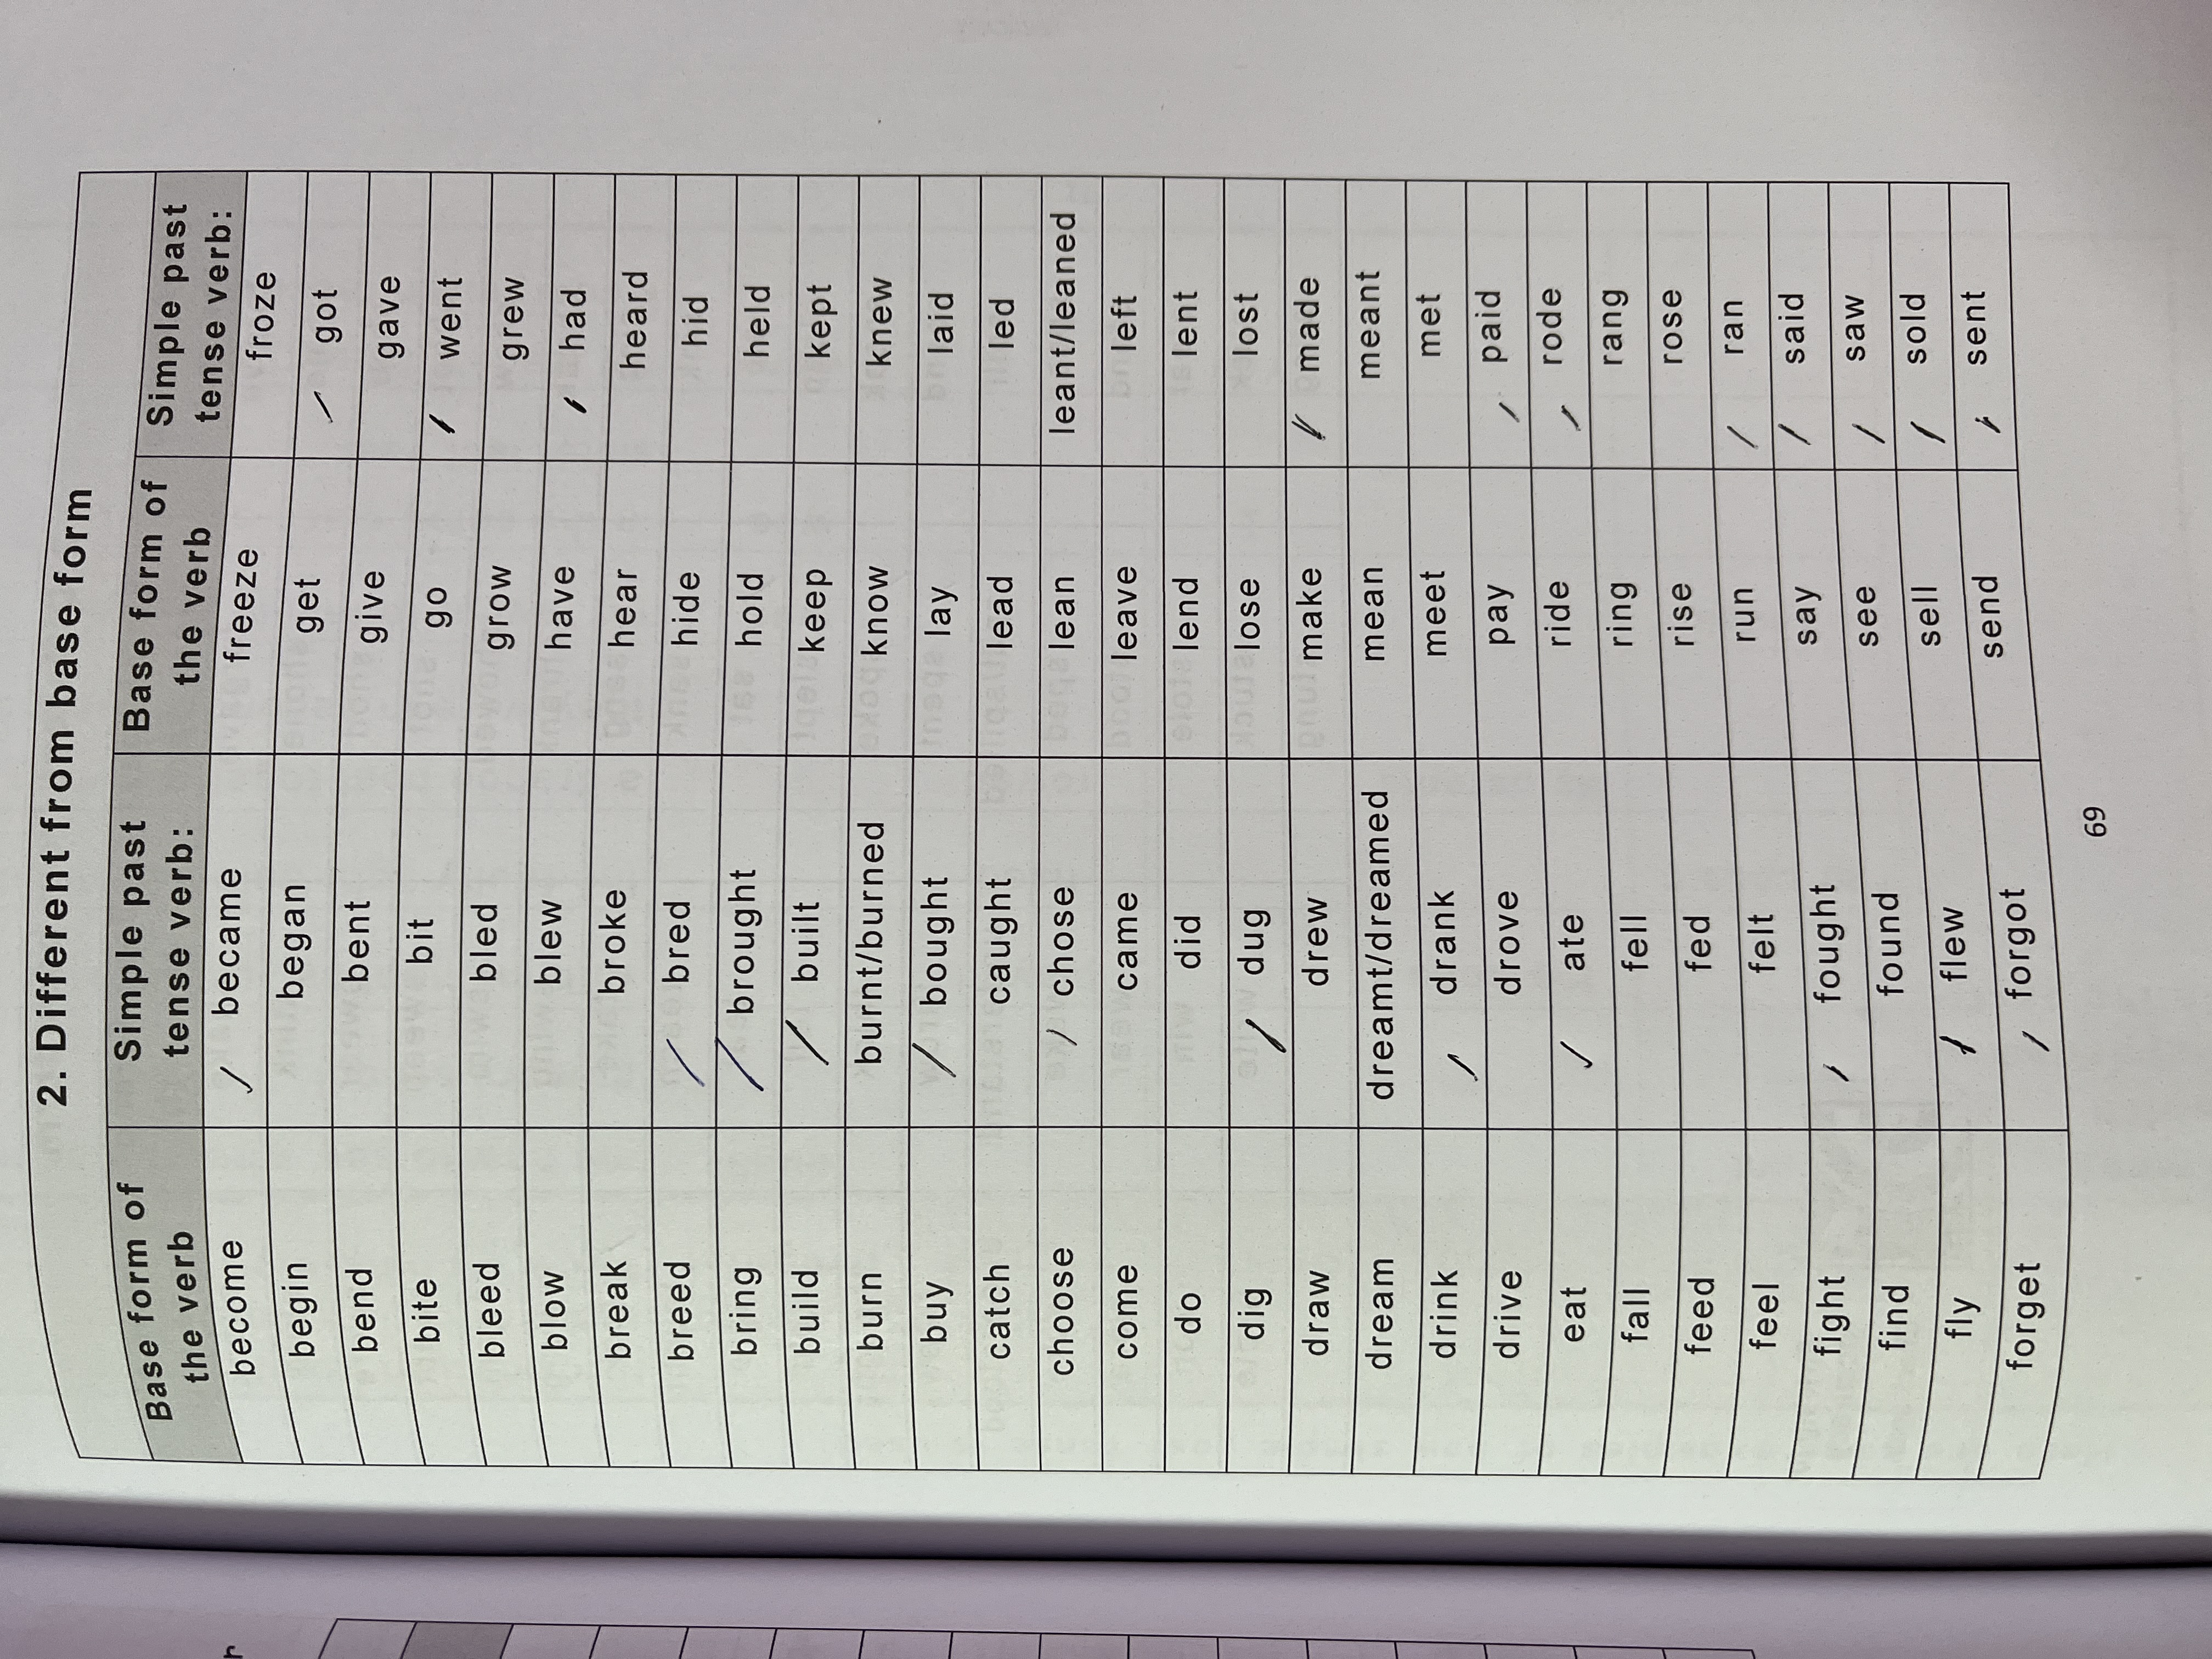 2. Different from base form
Base form of the verb Simple past tense verb: Base form of the verb Simple past tense verb:
become became freeze froze
begin began get got
bend bent give gave
bite bit go went
bleed bled grow grew
blow blew have had
break broke hear heard
breed bred hide hid
bring brought hold held
build built keep kept
burn burnt/burned know knew
buy bought lay laid
catch caught lead led
choose chose lean leant/leaned
come came leave left
do did lend lent
dig dug lose lost
draw drew make made
dream dreamt/dreamed mean meant
drink drank meet met
drive drove pay paid
eat ate ride rode
fall fell ring rang
feed fed rise rose
feel felt run ran
fight fought say said
find found see saw
fly flew sell sold
forget forgot send sent
69